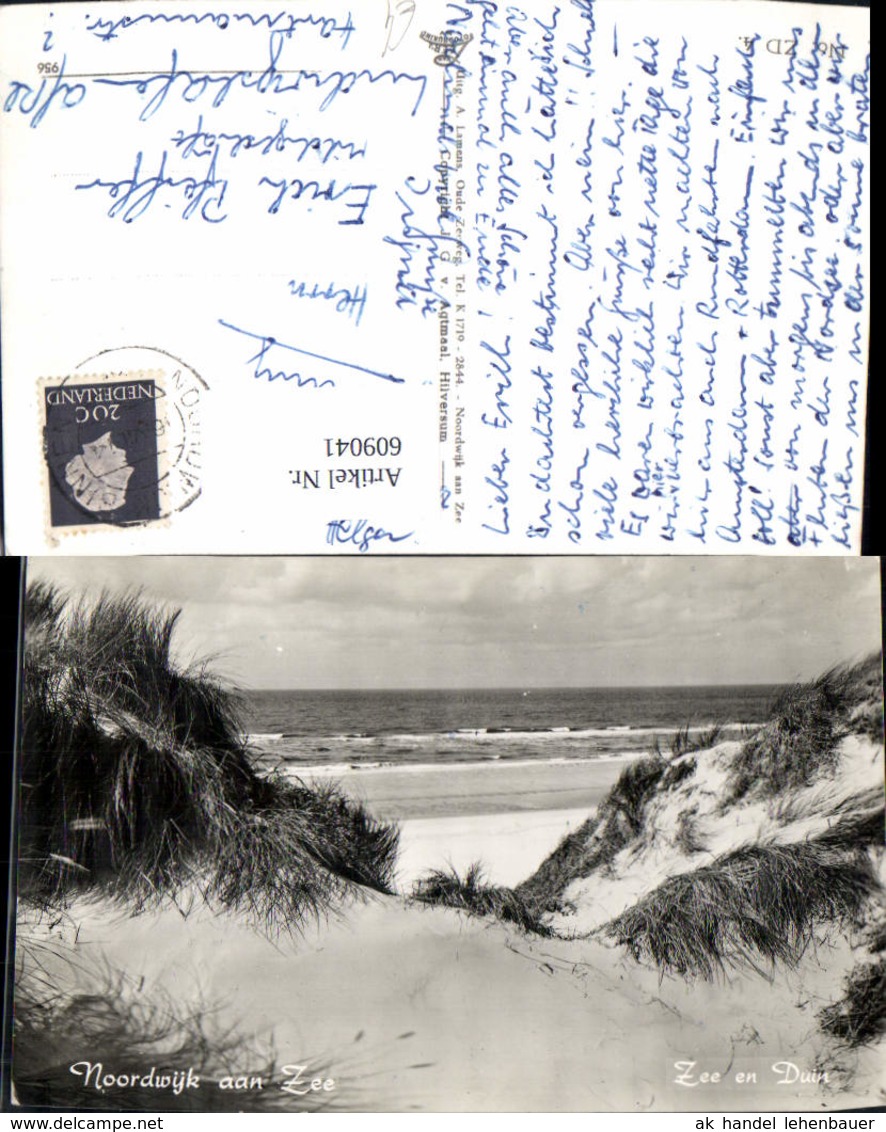 No. ZD 4.
Lieber Erich!
Du dachtest bestimmt ich hätte Dich
schon vergessen. Aber nein!! Schnell
viele herzliche Grüße von hier. –
Es waren wirklich sehr nette Tage die
wir hier verbrachten. Wir machten von
hier aus auch Rundfahrten nach
Amsterdam + Rotterdam. Einfach
toll! Sonst aber tummelten wir uns
aber von morgens bis abends in den
Fluten der Nordsee. oder aber wir
ließen uns in der Sonne braten.
Aber auch alles Schöne
geht einmal zu Ende!
Uitg. A. Lamens, Oude Zeeweg, Tel. K 1719 - 2844. - Noordwijk aan Zee
Copyright J. G. v. Agtmaal, Hilversum
Artikel Nr.
609041
NEDERLAND
20 C
Herrn
Erich Pfeiffer
Ludwigshafen
Hartmannstr. 2
956
Noordwijk aan Zee
Zee en Duin
ak handel lehenbauer